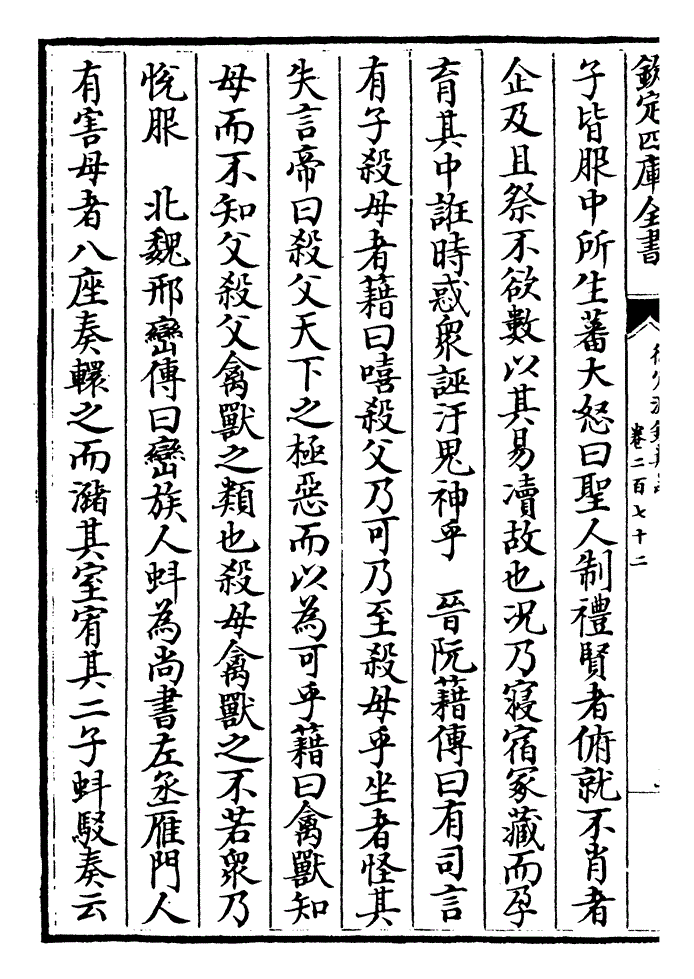 欽定四庫全書
卷二百七十二
子皆服中所生蕃大怒曰聖人制禮賢者俯就不肖者
企及且祭不欲數以其易瀆故也况乃寝宿冢藏而孕
育其中誑時惑衆誣汙鬼神乎　晉阮藉傳曰有司言
有子殺母者藉曰嘻殺父乃可乃至殺母乎坐者怪其
失言帝曰殺父天下之極惡而以為可乎藉曰禽獸知
母而不知父殺父禽獸之類也殺母禽獸之不若衆乃
悅服　北魏邢巒傳曰巒族人蚪為尚書左丞雁門人
有害母者八座奏轘之而瀦其室宥其二子蚪駁奏云